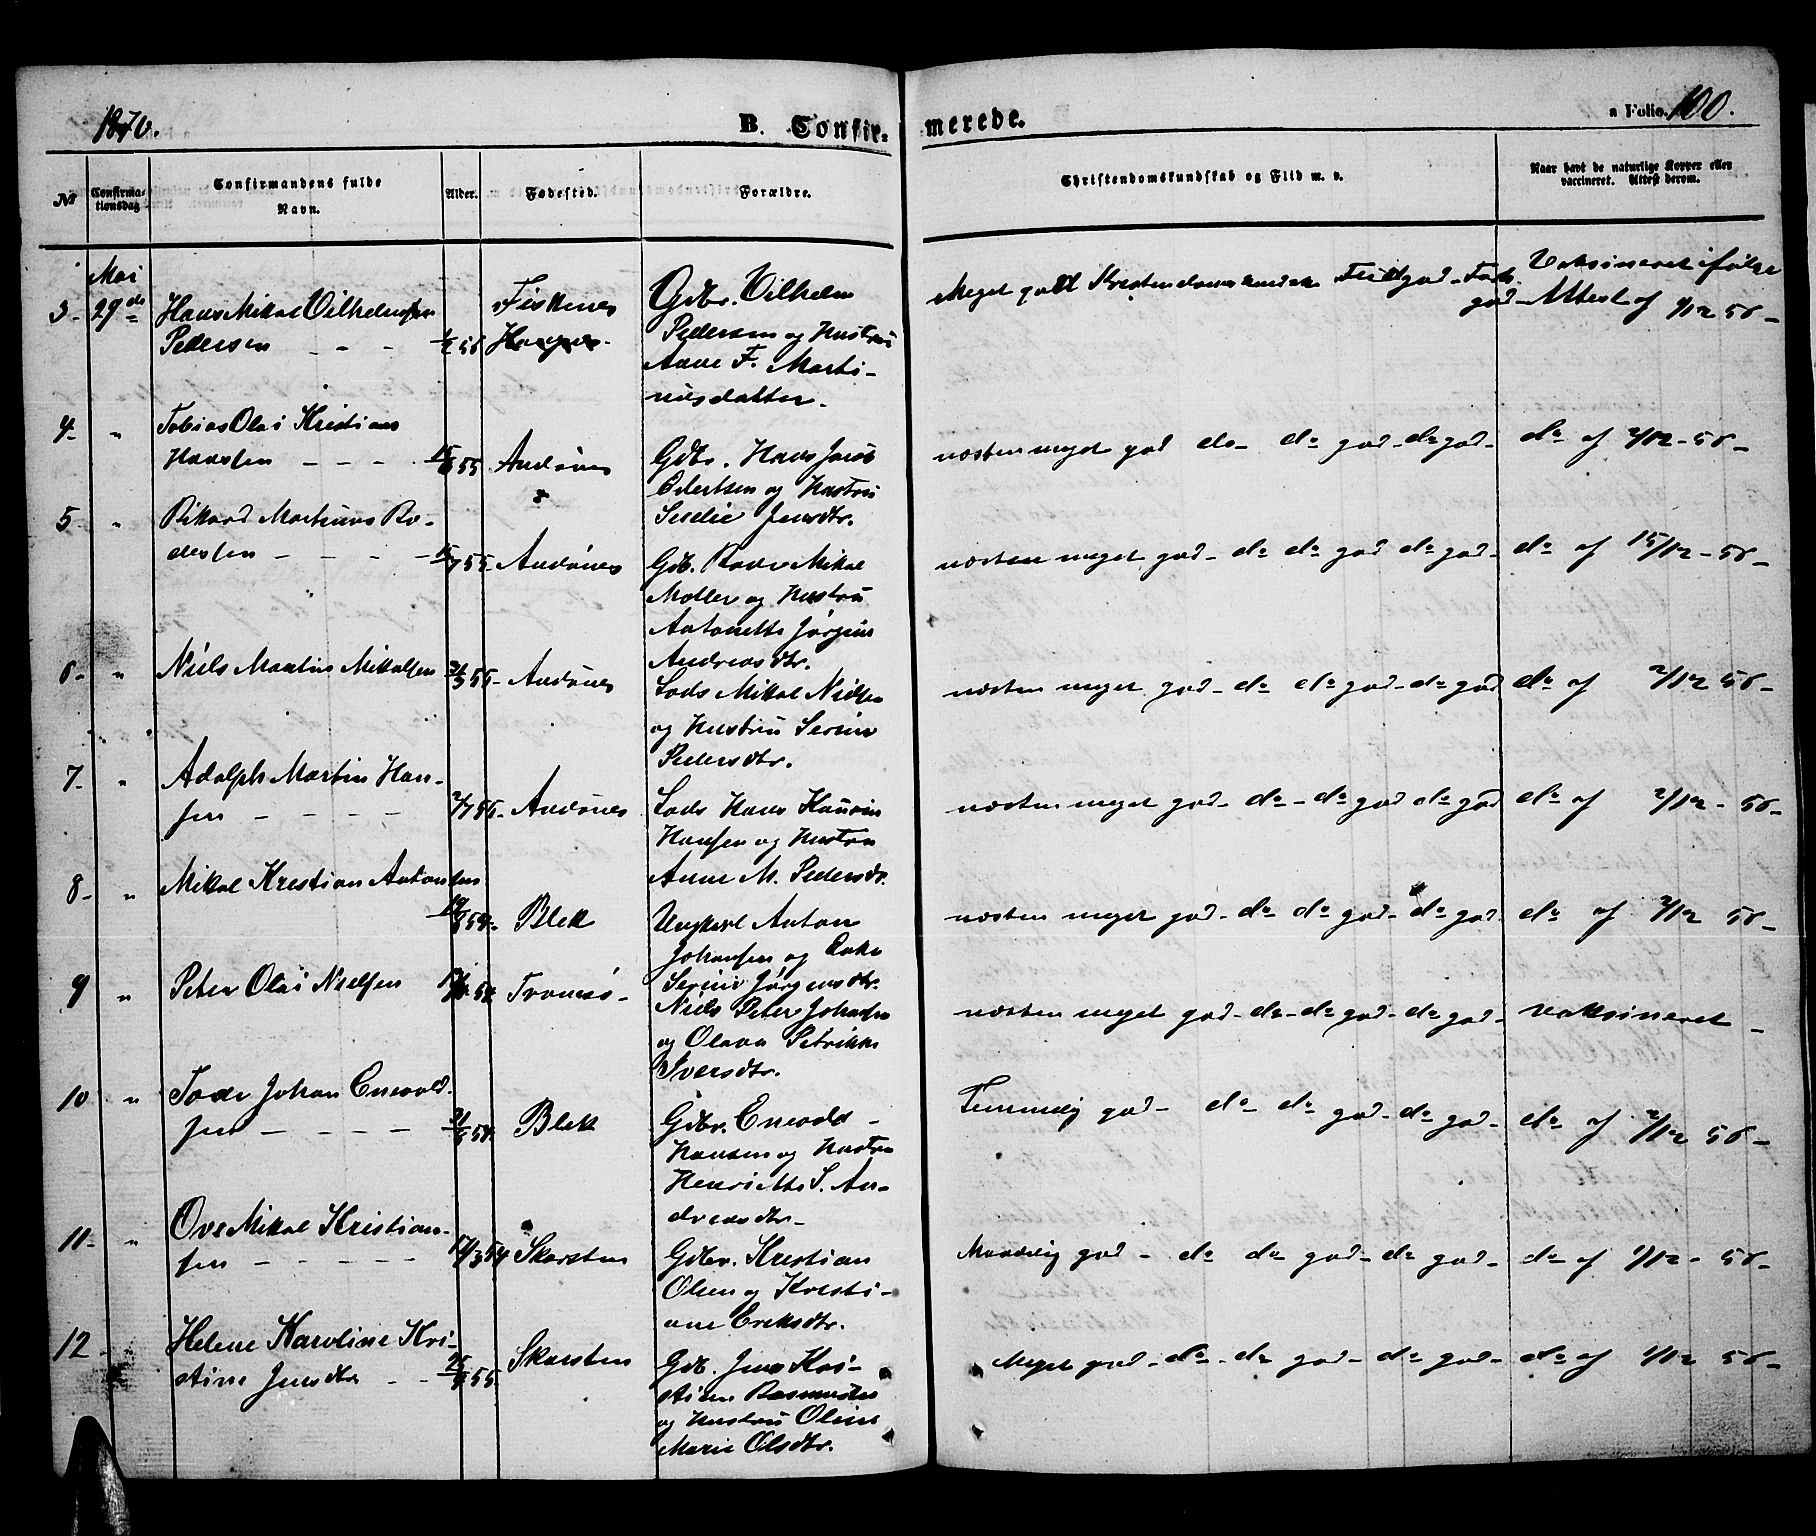 1870.
B. Confir-
merede.
a Folio 100.
No
Confirma-
tionsdag
Confirmandens fulde
Navn.
Alder.
Fødested.
Forældre.
Christendomskundskab og Flid m. v.
Naar havt de naturlige Kopper eller
vaccineret. Attest derom.
Mai
3. 29de Hans Mikal Vilhelmsen
Pedersen - - -
Fiskenes
Gdbr. Vilhelm
Pedersen og Hustru
Anne F. Marti-
nusdatter.
Meget godt Kristendomskundsk Flid god
god
Vaksineret ifølge
Attest af 1/12 56 -
4 " Tobias Olai Kristians
Hansen - - - 55 Andønes
Gdbr. Hans Jacob
Edertsen og Hustru
Jensdtr.
næsten meget god do do god do god - do af 2/12 - 56 -
5 " Rikard Martinus Ro-
desten - - - - 55. Andønes
Gdb. Mikal
Møller og Hustru
Antonette Jørgine
Andreasdtr.
næsten meget god - do do god do god - do af 15/12 - 56 -
6 - " Niels Martin Mikalsen 55 - Andønes
Lods Mikal Nielsen
og Hustru Serine
Pedersdtr.
næsten meget god - do do god - do god do af 2/12 56 -
7 - " Adolph Martin Han-
sen - - - - 2/7 55 - Andønes
Lods Hans
Hansen og Hustru
Anne M. Pedersdtr.
næsten meget god - do - do god do god do af 2/12 - 56 -
8 - " Mikal Kristian Antonsen
54 - Blek
Ungkarl Anton
Johansen og Enke
Serine Jørgensdtr.
næsten meget god - do do god - do god do af 2/12 56 -
9 " Peter Olai Nielsen 54 - Tromsø -
Niels Peter Johansen
og Olava Petrikke
Iversdtr.
næsten meget god - do - do god - do god - vaksineret -
10 " Johan Enevold
sen - - - - 54. Blek
Gdbr. Enevold -
Hansen og Hustru
Henriette S. An-
dreasdtr -
Temmelig god - do do god - do god - do af 2/12 56 -
11 - " Ove Mikal Kristian-
sen - - - - - 17/3 54 Skarsten
Gdbr. Kristian
Olsen og Kristi-
ane Eriksdtr.
Maadelig god - do do god - do god - do af 1/12 - 56 -
12 - Helene Karoline Kri-
stine Jensdtr - - 55 Skarsten
Gdb. Jens Kri-
stian Rasmussen
og Hustru Oline
Marie Olsdtr.
Meget god - do - do god - do god - do af 1/12 56 -